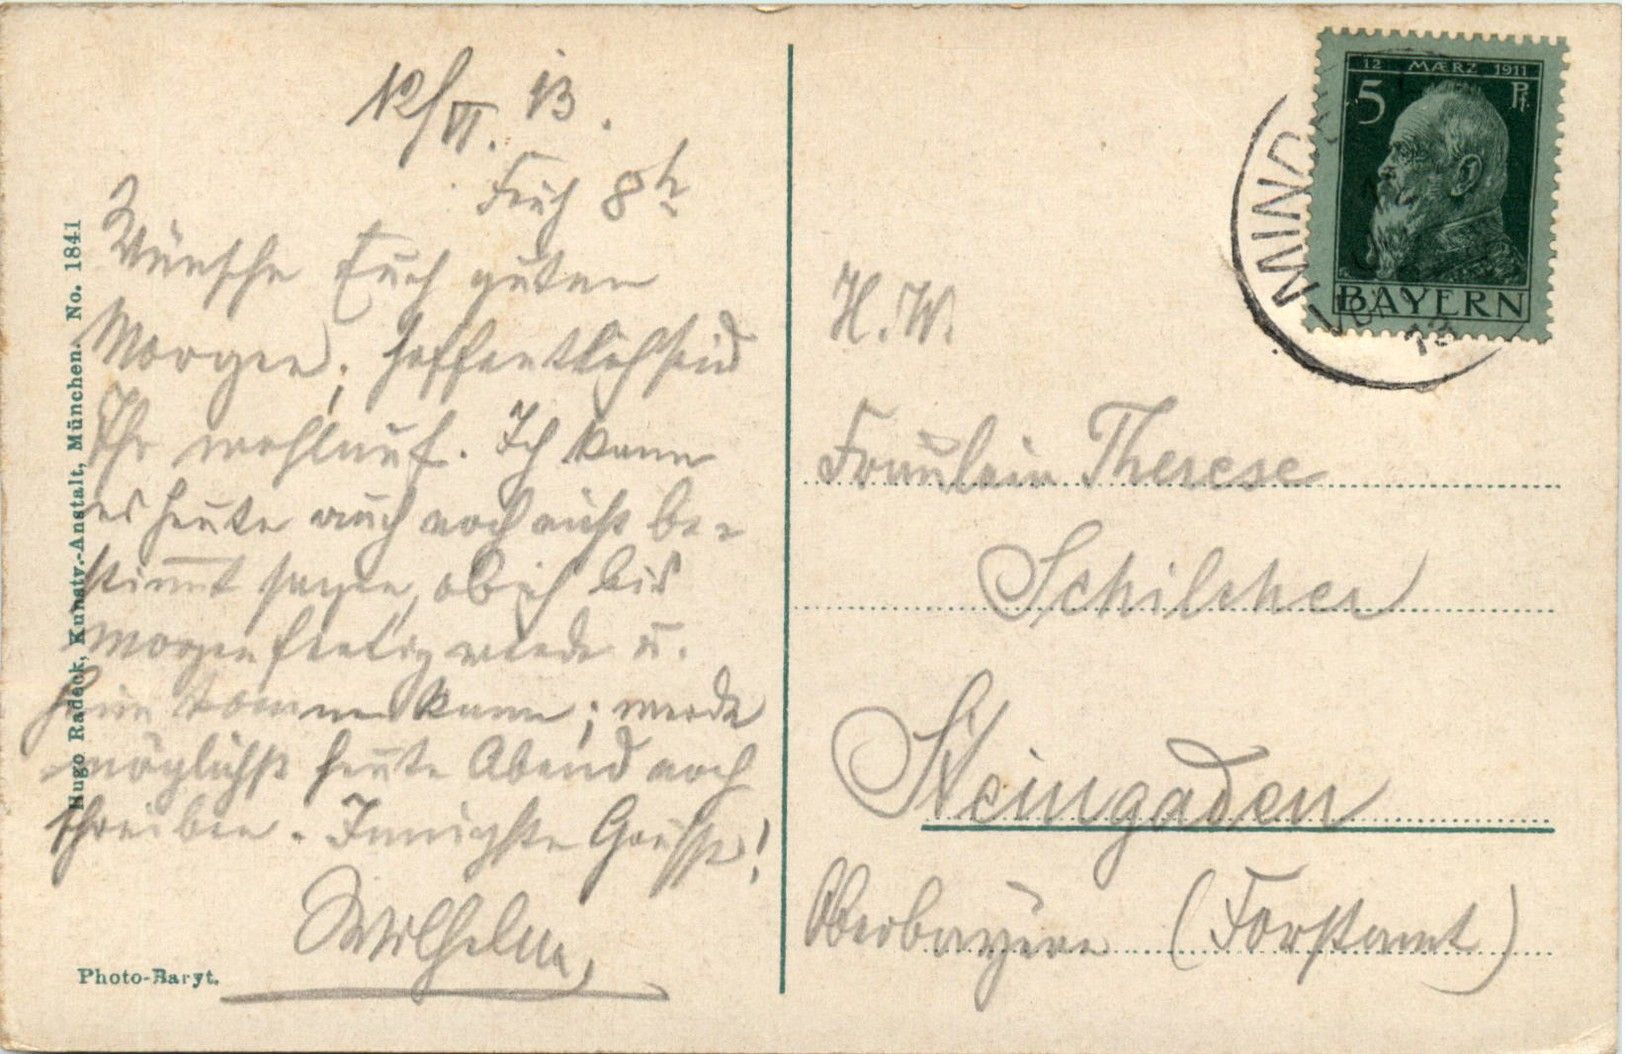 12/VI. 13.
Früh 8h
Wünsche Euch guten
Morgen; hoffentlich seid
Ihr wohlauf. Ich kann
es heute auch noch nicht be-
stimmt sagen, ob ich bis
morgen fertig werde u.
heim kommen kann; werde
möglichst heute Abend noch
schreiben. Innigste Grüsse!
Wilhelm
Hugo Radeck, Kunstv.-Anstalt, München. No. 1841
Photo-Baryt.
12 MÆRZ 1911
5 Pf.
BAYERN
MIND
13
H. W.
Fräulein Therese
Schilcher
Steingaden
Oberbayern (Forstamt)